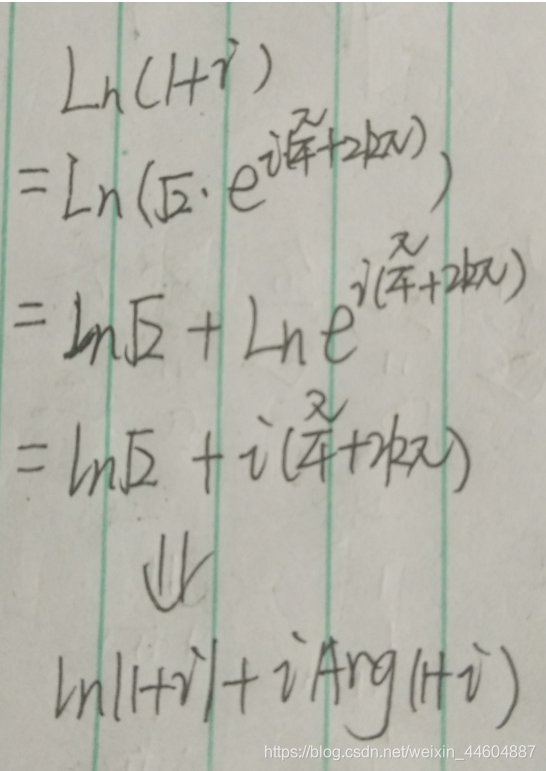 Ln(1+i)
=Ln(√2·e^{i(π/4+2kπ)})
=ln√2+Ln e^{i(π/4+2kπ)}
=ln√2+i(π/4+2kπ)
⇓
ln|1+i|+iArg(1+i)
https://blog.csdn.net/weixin_44604887